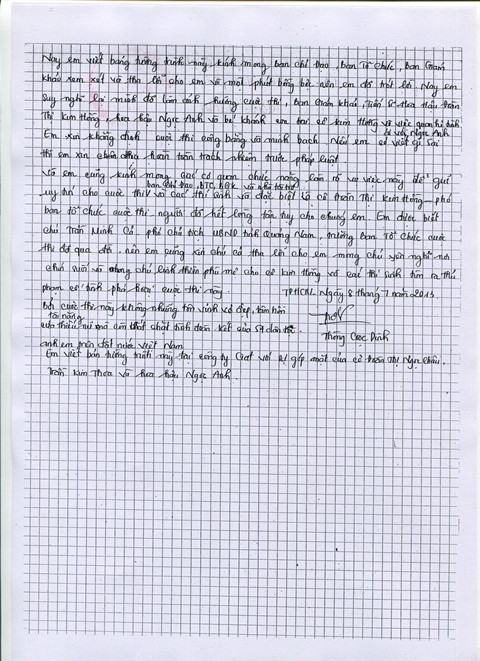 Nay em viết bảng tường trình này, kính mong Ban chỉ đạo, Ban Tổ chức, Ban Giám
khảo xem xét và tha lỗi cho em vì một phút bồng bột nên em đã trót lỡ. Nay em
suy nghĩ lại mình đã làm ảnh hưởng cuộc thi, Ban Giám khảo, Trần
Thị Kim Thông, hoa hậu Ngọc Anh
và việc quan hệ tình
bé với Ngọc Anh
Em xin khẳng định cuộc thi công bằng và minh bạch. Nếu em có viết gì sai
thì em xin chịu hoàn toàn trách nhiệm trước pháp luật
Và em cũng kính mong các cơ quan chức năng làm rõ vụ việc này để giữ
ban chỉ đạo, BTC, BGK và nhà tài trợ
uy tín cho cuộc thi và các thí sinh và đặc biệt là cô Trần Thị Kim Thông - phó
ban tổ chức cuộc thi, người đã hết lòng tận tụy cho chúng em. Em được biết
chú Trần Minh Cả phó chủ tịch UBND tỉnh Quảng Nam, trưởng Ban Tổ chức cuộc
thi đã qua đời, nên em cũng xin chú có tha lỗi cho em mong chú yên nghỉ nơi
chín suối và mong chú linh thiên phù mẹ cho cô Kim Thông và các thí sinh tìm ra thủ
phạm cố tình phá hoại cuộc thi này. TPHCM, Ngày 8 tháng 7 năm 2013
Bởi cuộc thi này không những tôn vinh vẻ đẹp, tâm hồn
tài năng
của thiếu nữ mà còn thắt chặt tình đoàn kết của 54 dân tộc
Thông Cooc Dinh
anh em trên đất nước Việt Nam
Em viết bản tường trình này tại công ty với sự góp mặt của cô Trần Thị Ngọc Châu,
Trần Kim Thoa và hoa hậu Ngọc Anh.